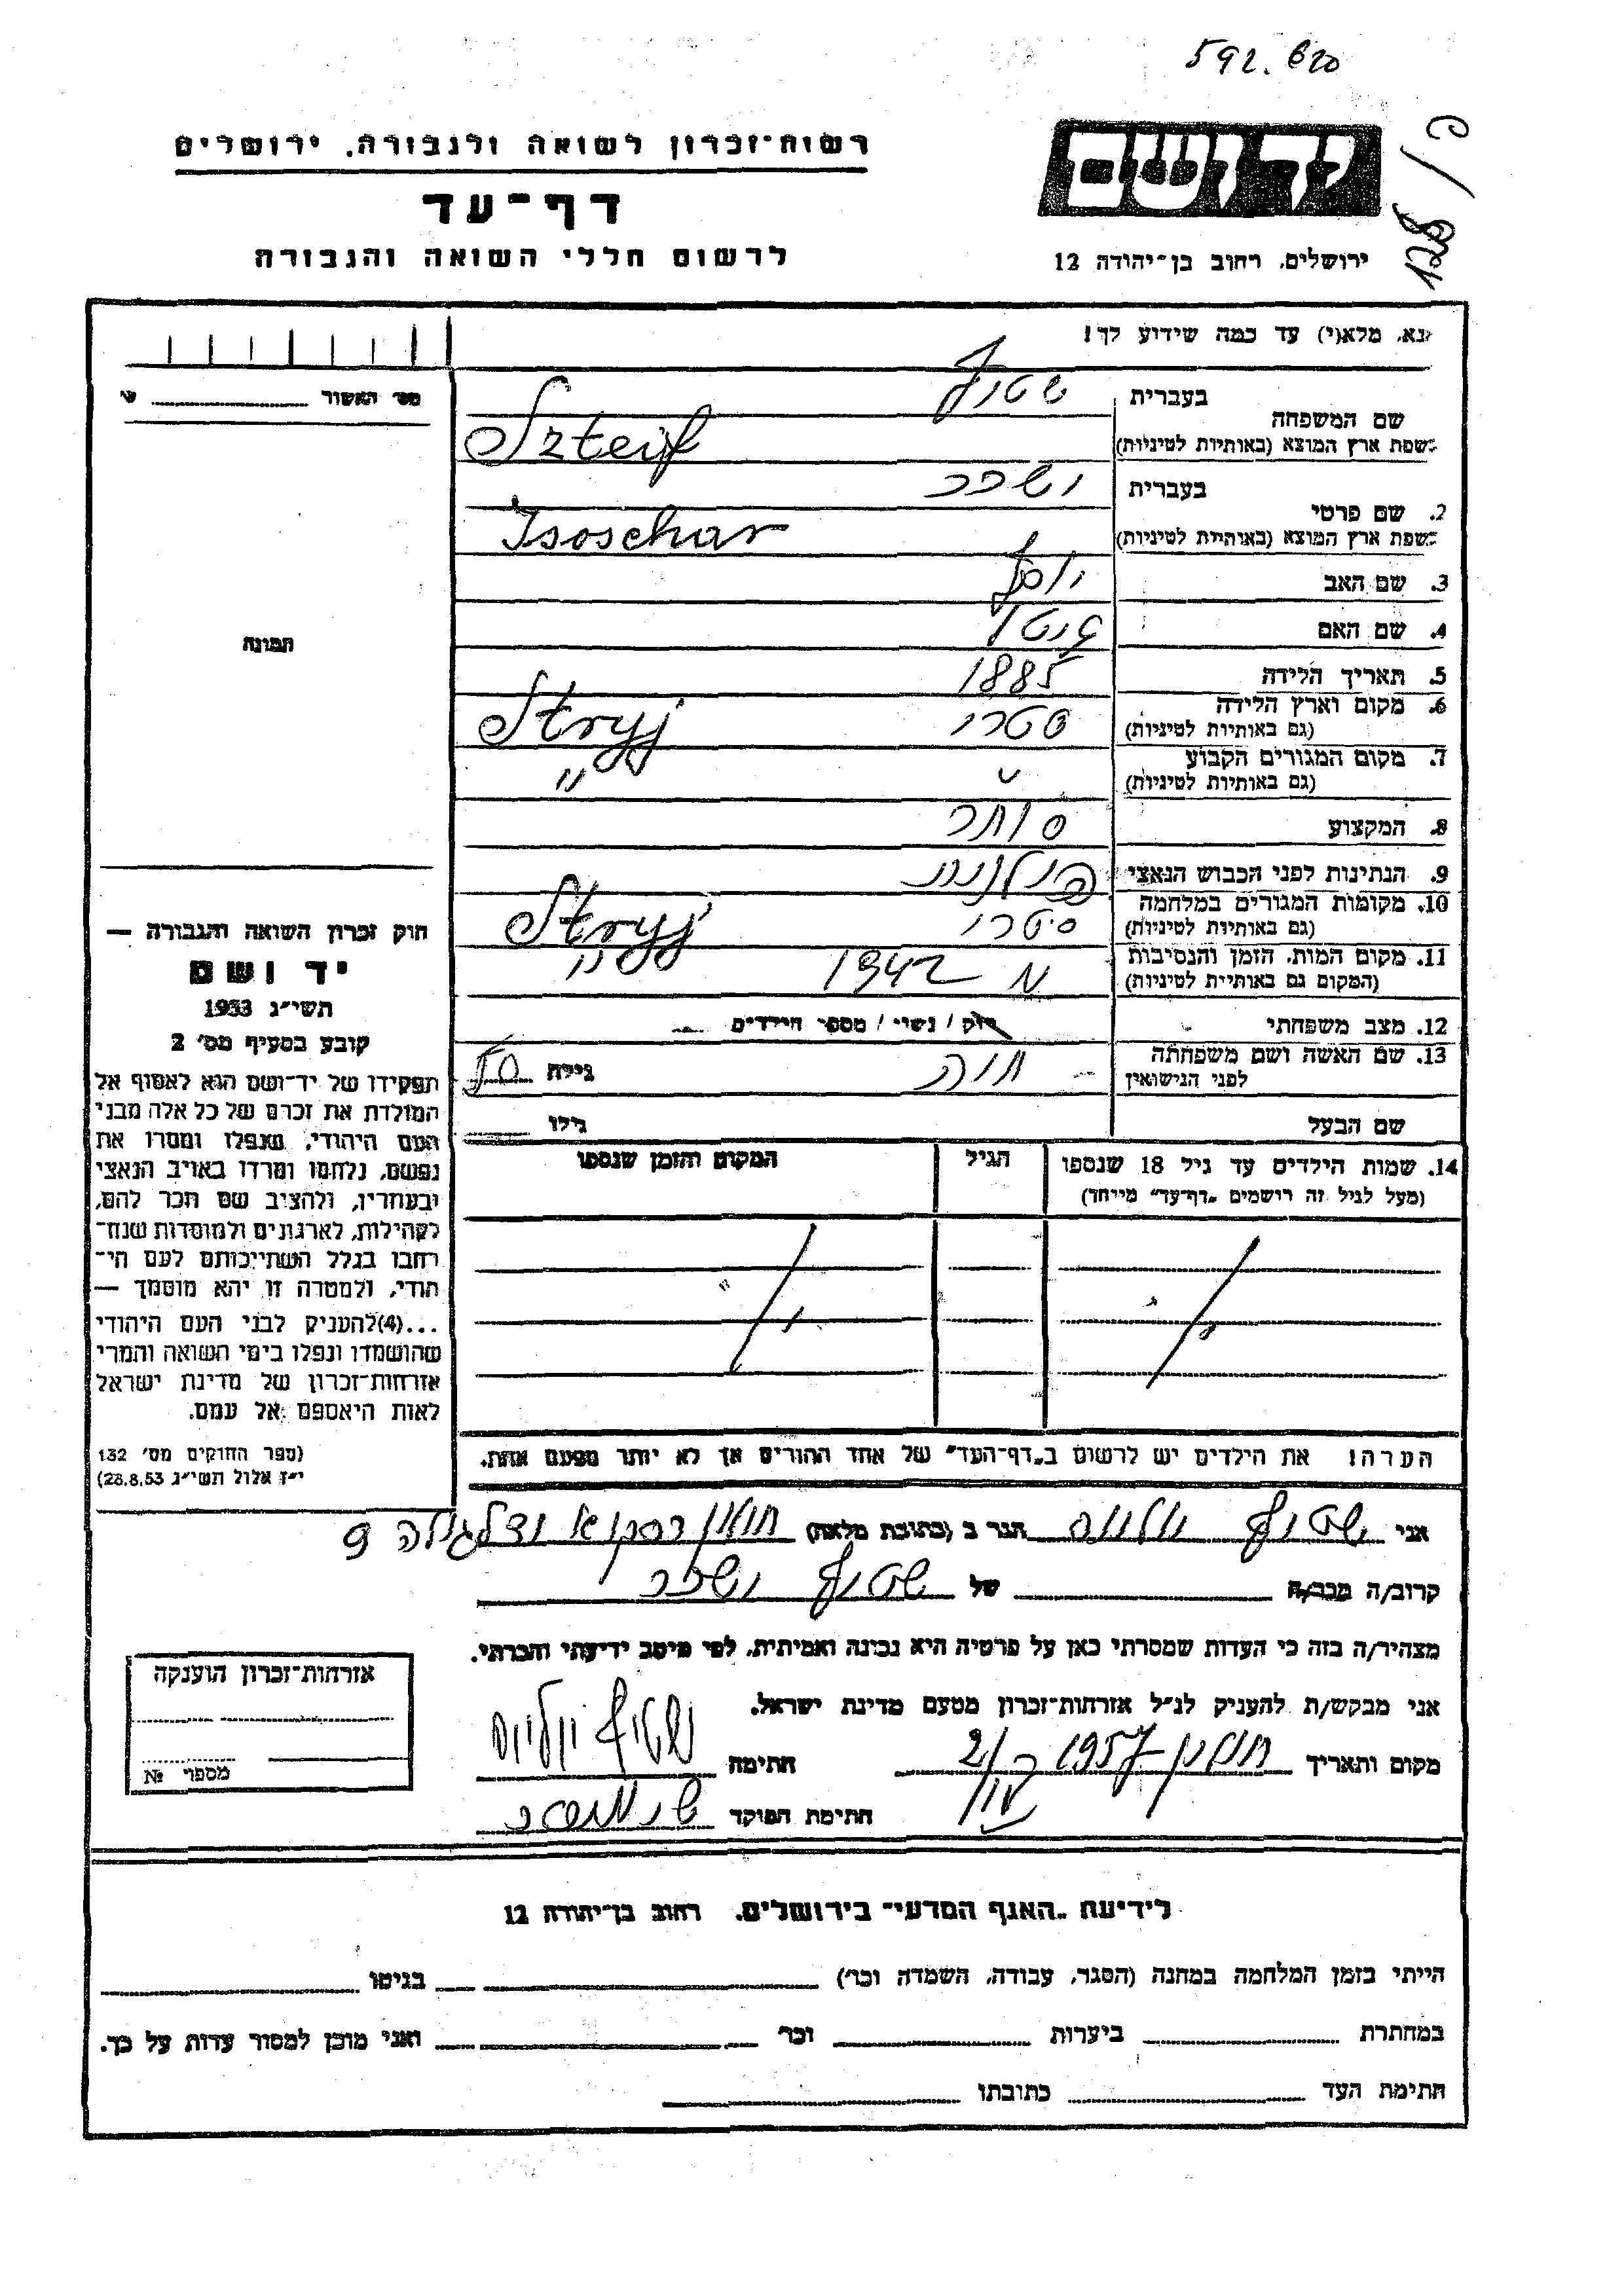 592.620
רשות־זכרון לשואה ולגבורה, ירושלים
יד ושם
דף־עד
לרשום חללי השואה והגבורה
ירושלים, רחוב בן־יהודה 12
נא, מלא(י) עד כמה שידוע לך!
מס׳ האשור
בעברית שטיף
שם המשפחה
בשפת ארץ המוצא (באותיות לטיניות) Szteif
בעברית יששכר
2. שם פרטי
בשפת ארץ המוצא (באותיות לטיניות) Isoschar
3. שם האב יוסף
4. שם האם
5. תאריך הלידה 1885
6. מקום וארץ הלידה סטרי Stryj
(גם באותיות לטיניות)
7. מקום המגורים הקבוע " "
(גם באותיות לטיניות)
8. המקצוע סוחר
9. הנתינות לפני הכבוש הנאצי פולנית
10. מקומות המגורים במלחמה סטרי Stryj
(גם באותיות לטיניות)
11. מקום המות, הזמן והנסיבות 1942 "
(המקום גם באותיות לטיניות)
12. מצב משפחתי רווק / נשוי / מספר הילדים
13. שם האשה ושם משפחתה חוה גילה 50
לפני הנישואין
שם הבעל גילו
14. שמות הילדים עד גיל 18 שנספו הגיל המקום והזמן שנספו
(מעל לגיל זה רושמים „דף־עד" מיוחד)
הערה: את הילדים יש לרשום ב„דף־העד" של אחד ההורים אך לא יותר מפעם אחת.
תמונה
חוק זכרון השואה והגבורה —
יד ושם
תשי״ג 1953
קובע בסעיף מס׳ 2
תפקידו של יד־ושם הוא לאסוף אל
המולדת את זכרם של כל אלה מבני
העם היהודי, שנפלו ומסרו את
נפשם, נלחמו ומרדו באויב הנאצי
ובעוזריו, ולהציב שם וזכר להם,
לקהילות, לארגונים ולמוסדות שנח־
רבו בגלל השתייכותם לעם הי־
הודי, ולמטרה זו יהא מוסמך —
...(4)להעניק לבני העם היהודי
שהושמדו ונפלו בימי השואה והמרי
אזרחות־זכרון של מדינת ישראל
לאות היאספם אל עמם.
(ספר החוקים מס׳ 132
י״ז אלול תשי״ג 28.8.53)
אני שטיף הגר ב (כתובת מלאה) חולון 9
קרוב/ה מכר/ה של שטיף יששכר
מצהיר/ה בזה כי העדות שמסרתי כאן על פרטיה היא נכונה ואמיתית, לפי מיטב ידיעתי והכרתי.
אני מבקש/ת להעניק לנ״ל אזרחות־זכרון מטעם מדינת ישראל.
מקום ותאריך חולון 1957 חתימה שטיף
חתימת הפוקד
אזרחות־זכרון הוענקה
מספרי №
לידיעת „האגף המדעי״ בירושלים, רחוב בן־יהודה 12
הייתי בזמן המלחמה במחנה (הסגר, עבודה, השמדה וכר׳) בגיטו
במחתרת ביערות וכר׳ ואני מוכן למסור עדות על כך.
חתימת העד כתובתו